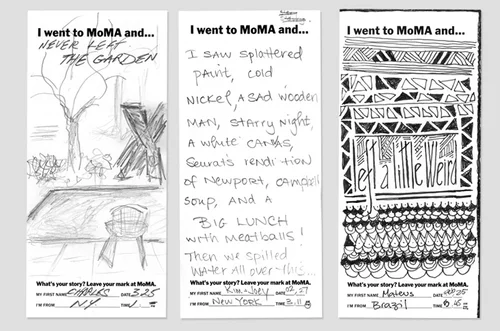 I went to MoMA and...
NEVER LEFT
THE GARDEN
What's your story? Leave your mark at MoMA.
MY FIRST NAME CHARLES DATE 3.25
I'M FROM NY TIME
I went to MoMA and...
I SAW SPLATTERED
PAINT, COLD
NICKEL, A SAD WOODEN
MAN, STARRY NIGHT,
A WHITE CANVAS,
Seurat's rendition
OF NEWPORT, CAMPBELL
SOUP, AND A
BIG LUNCH
WITH MEATBALLS!
Then we spilled
WATER All over this...
What's your story? Leave your mark at MoMA.
MY FIRST NAME Kim + Joey DATE 02.27
I'M FROM New York TIME 3.11
I went to MoMA and...
left a little Weird
What's your story? Leave your mark at MoMA.
MY FIRST NAME Mateus DATE
I'M FROM Brazil TIME